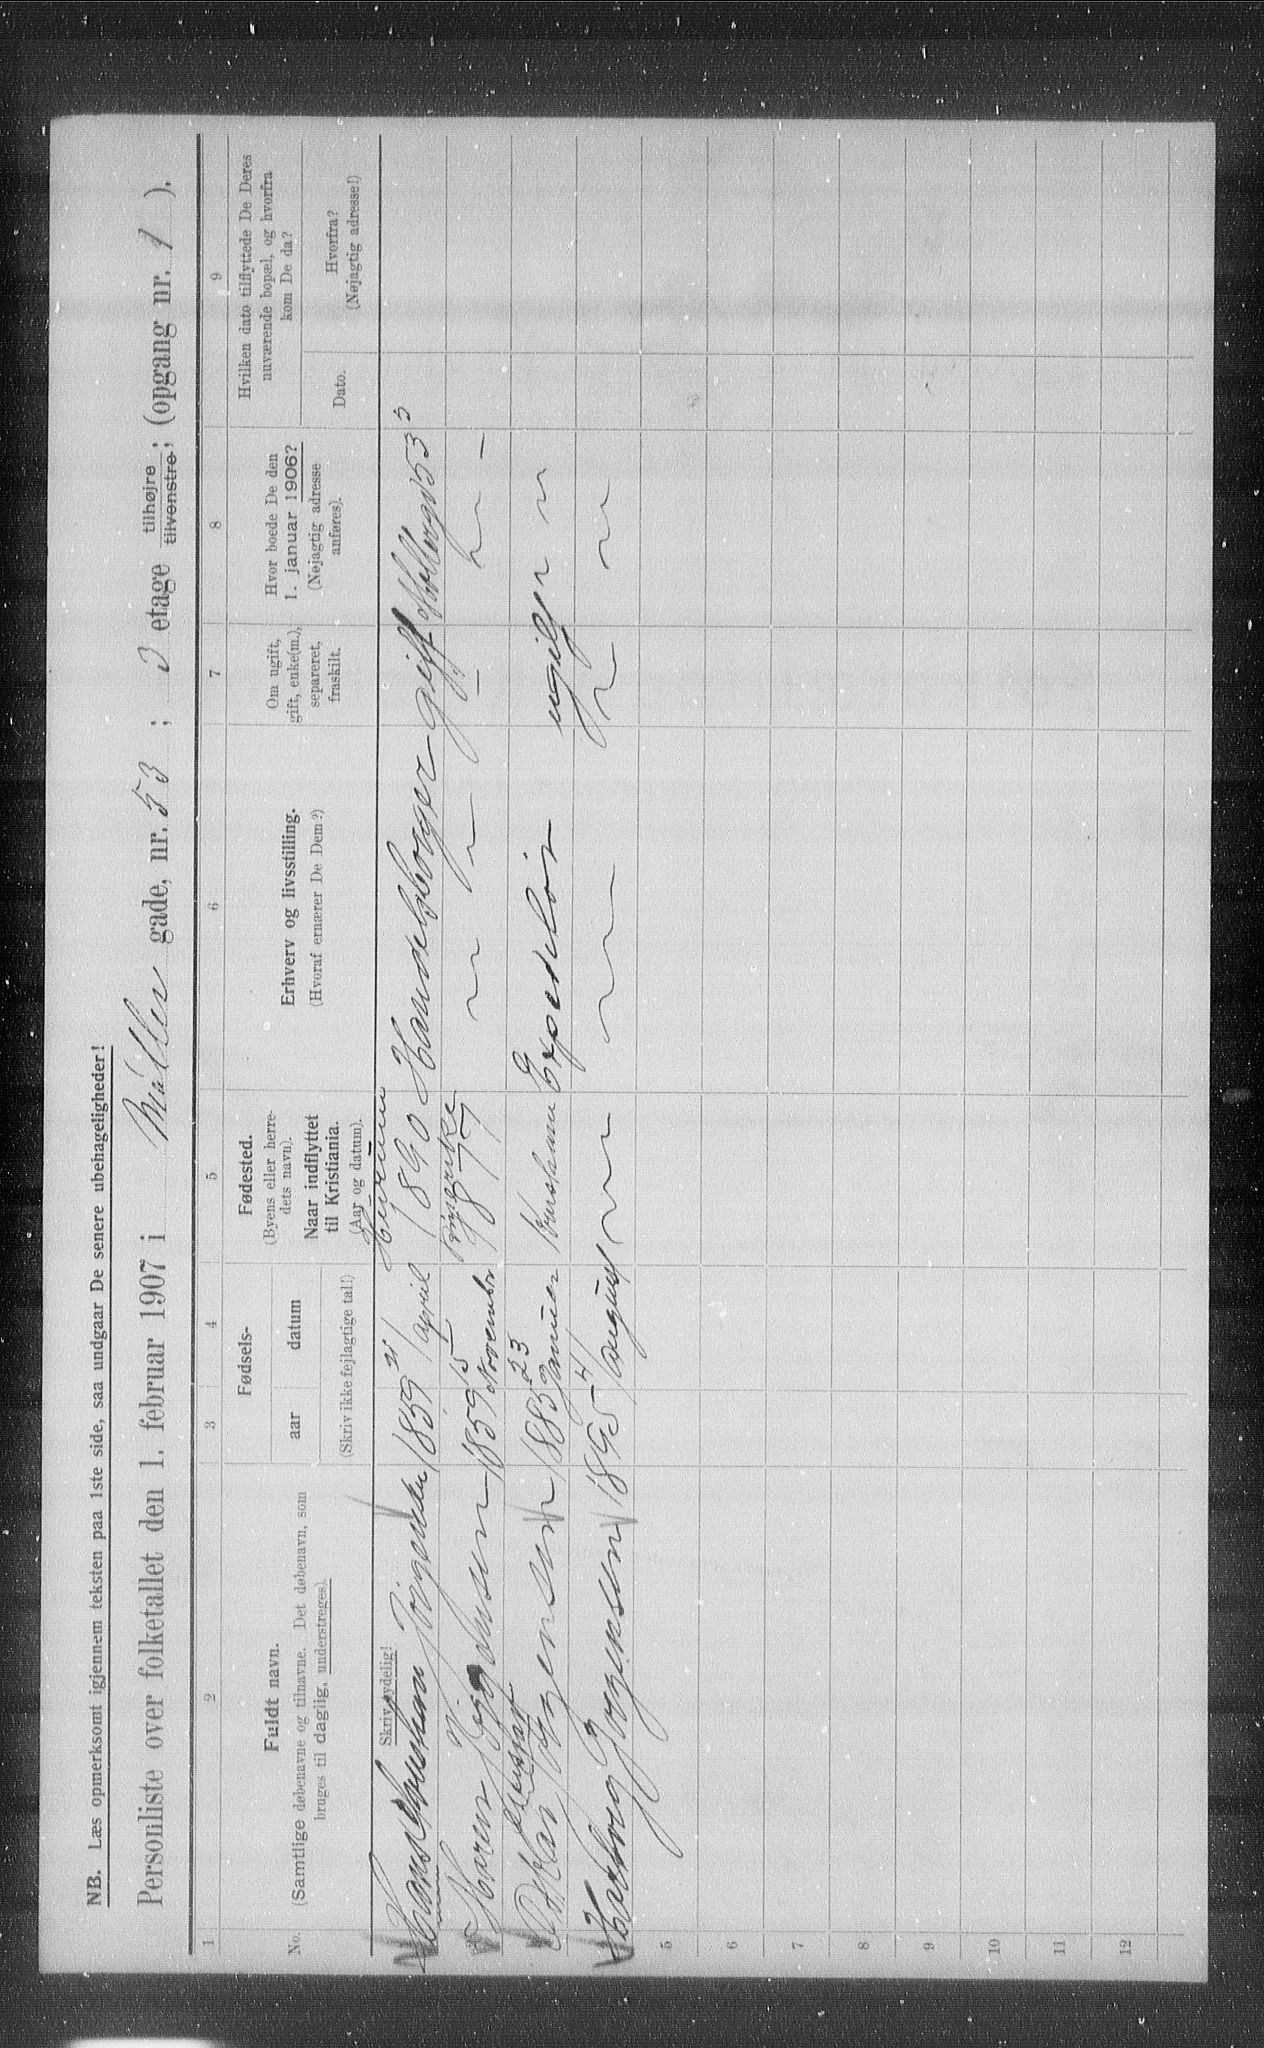 NB. Læs opmerksomt igjennem teksten paa 1ste side, saa undgaar De senere ubehageligheder!
Personliste over folketallet den 1. februar 1907 i Møller gade, nr. 53; 3 etage tilhøjre tilvenstre; (opgang nr. 1).
1 2 3 4 5 6 7 8 9
No.
Fuldt navn.
(Samtlige døbenavne og tilnavne. Det døbenavn, som
bruges til daglig, understreges).
Fødsels-
aar datum
(Skriv ikke fejlagtige tal!)
Fødested.
(Byens eller herre-
dets navn).
Naar indflyttet
til Kristiania.
(Aar og datum).
Erhverv og livsstilling.
(Hvoraf ernærer De Dem?)
Om ugift,
gift, enke(m.),
separeret,
fraskilt.
Hvor boede De den
1. januar 1906?
(Nøjagtig adresse
anføres).
Hvilken dato tilflyttede De Deres
nuværende bopæl, og hvorfra
kom De da?
Dato.
Hvorfra?
(Nøjagtig adresse!)
Skriv tydelig!
Hans 1859 21 april 1890 Handelsborger gift Møllerg 53 3
Maren Jørgensen 1859 15 November Ringerike 1877
Jørgensen 1885 23 Januar Kristiania Expeditør ugift
Jørgensen 1895 4 august
5
6
7
8
9
10
11
12